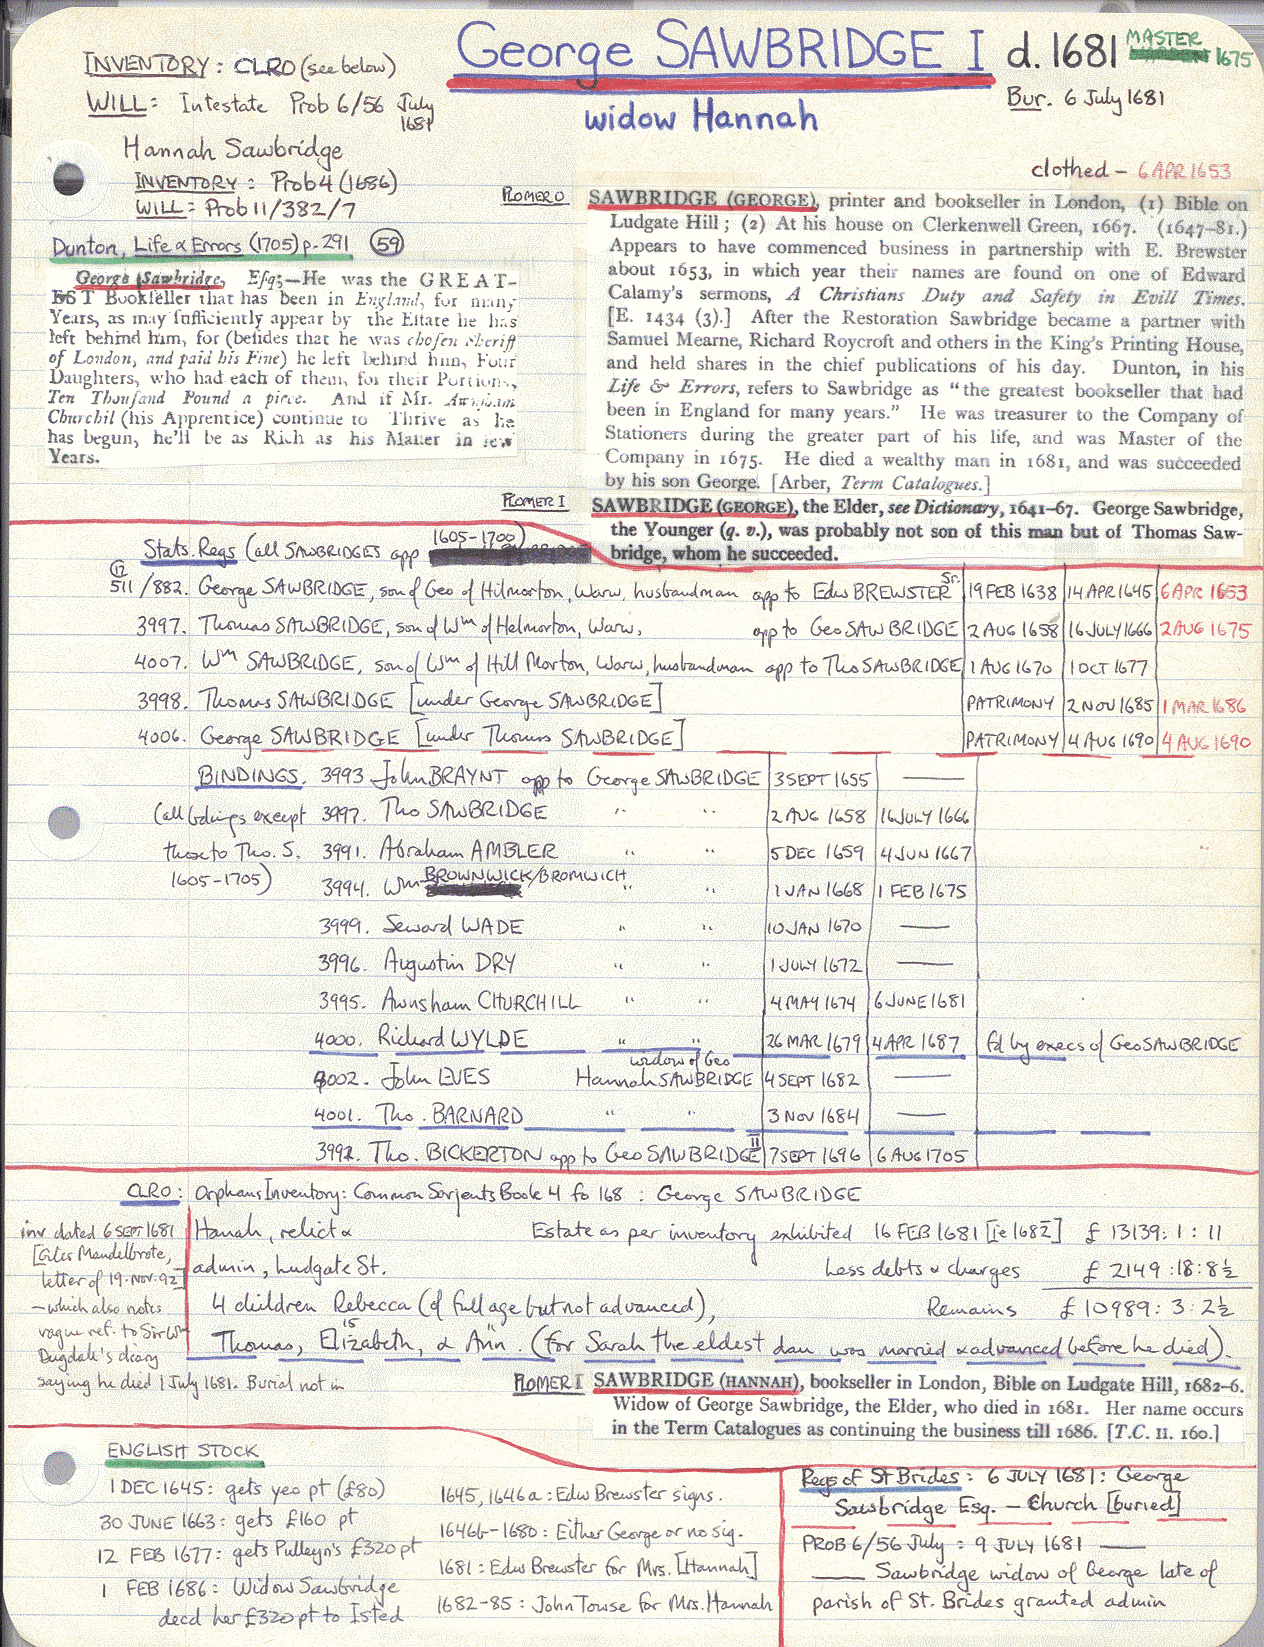 George SAWBRIDGE I d. 1681 MASTER 1675
INVENTORY : CLRO (see below)
WILL : Intestate Prob 6/56 July 1681
Bur. 6 July 1681
widow Hannah
Hannah Sawbridge
INVENTORY : Prob 4 (1686)
WILL : Prob 11/382/7
clothed – 6 APR 1653
Dunton, Life & Errors (1705) p. 291 (59)
George Sawbridge, Esq;—He was the GREAT-
EST Bookseller that has been in England, for many
Years, as may sufficiently appear by the Estate he has
left behind him, for (besides that he was chosen Sheriff
of London, and paid his Fine) he left behind him, Four
Daughters, who had each of them, for their Portions,
Ten Thousand Pound a piece. And if Mr. Awnsham
Churchil (his Apprentice) continue to Thrive as he
has begun, he'll be as Rich as his Master in few
Years.
PLOMER O
SAWBRIDGE (GEORGE), printer and bookseller in London, (1) Bible on
Ludgate Hill ; (2) At his house on Clerkenwell Green, 1667. (1647–81.)
Appears to have commenced business in partnership with E. Brewster
about 1653, in which year their names are found on one of Edward
Calamy's sermons, A Christians Duty and Safety in Evill Times.
[E. 1434 (3).] After the Restoration Sawbridge became a partner with
Samuel Mearne, Richard Roycroft and others in the King's Printing House,
and held shares in the chief publications of his day. Dunton, in his
Life & Errors, refers to Sawbridge as "the greatest bookseller that had
been in England for many years." He was treasurer to the Company of
Stationers during the greater part of his life, and was Master of the
Company in 1675. He died a wealthy man in 1681, and was succeeded
by his son George. [Arber, Term Catalogues.]
PLOMER I
SAWBRIDGE (GEORGE), the Elder, see Dictionary, 1641–67. George Sawbridge,
the Younger (q. v.), was probably not son of this man but of Thomas Saw-
bridge, whom he succeeded.
Stats. Regs (all SAWBRIDGES app 1605–1700)
(12)
511/882. George SAWBRIDGE, son of Geo of Hilmorton, Warw, husbandman app to Edw BREWSTER Sr. 19 FEB 1638 14 APR 1645 6 APR 1653
3997. Thomas SAWBRIDGE, son of Wm of Helmorton, Warw, app to Geo SAWBRIDGE 2 AUG 1658 16 JULY 1666 2 AUG 1675
4007. Wm SAWBRIDGE, son of Wm of Hill Morton, Warw, husbandman app to Tho SAWBRIDGE 1 AUG 1670 1 OCT 1677
3998. Thomas SAWBRIDGE [under George SAWBRIDGE] PATRIMONY 2 NOV 1685 1 MAR 1686
4006. George SAWBRIDGE [under Thomas SAWBRIDGE] PATRIMONY 4 AUG 1690 4 AUG 1690
BINDINGS. 3993 John BRAYNT app to George SAWBRIDGE 3 SEPT 1655 —
(all bdings except
those to Tho. S.
1605–1705)
3997. Tho SAWBRIDGE " " 2 AUG 1658 16 JULY 1666
3991. Abraham AMBLER " " 5 DEC 1659 4 JUN 1667
3994. Wm BROWNWICK/BROMWICH " " 1 JAN 1668 1 FEB 1675
3999. Seward WADE " " 10 JAN 1670 —
3996. Augustin DRY " " 1 JULY 1672 —
3995. Awnsham CHURCHILL " " 4 MAY 1674 6 JUNE 1681
4000. Richard WYLDE " " 26 MAR 1679 4 APR 1687 fd by execs of Geo SAWBRIDGE
4002. John EVES widow of Geo Hannah SAWBRIDGE 4 SEPT 1682 —
4001. Tho. BARNARD " " 3 NOV 1684 —
3992. Tho. BICKERTON app to Geo SAWBRIDGE II 7 SEPT 1696 6 AUG 1705
CLRO : Orphans Inventory: Common Serjents Book 4 fo 168 : George SAWBRIDGE
inv dated 6 SEPT 1681
[Giles Mandelbrote,
letter of 19. NOV. 92]
– which also notes
vague ref. to Sir Wm
Dugdale's diary
saying he died 1 July 1681. Burial not in
Hanah, relict &
admin, Ludgate St.
Estate as per inventory exhibited 16 FEB 1681 [ie 1682] £ 13139 : 1 : 11
Less debts & charges £ 2149 : 18 : 8½
Remains £ 10989 : 3 : 2½
4 children Rebecca (of full age but not advanced),
Thomas, Elizabeth, 15 & Ann. (for Sarah the eldest dau was married & advanced before he died).
PLOMER I
SAWBRIDGE (HANNAH), bookseller in London, Bible on Ludgate Hill, 1682–6.
Widow of George Sawbridge, the Elder, who died in 1681. Her name occurs
in the Term Catalogues as continuing the business till 1686. [T.C. II. 160.]
ENGLISH STOCK
1 DEC 1645 : gets yeo pt (£80)
30 JUNE 1663 : gets £160 pt
12 FEB 1677 : gets Pulleyn's £320 pt
1 FEB 1686 : Widow Sawbridge
decd her £320 pt to Isted
1645, 1646a : Edw Brewster signs.
1646b–1680 : Either George or no sig.
1681 : Edw Brewster for Mrs. [Hannah]
1682–85 : John Towse for Mrs. Hannah
Regs of St Brides : 6 JULY 1681 : George
Sawbridge Esq. – Church [buried]
PROB 6/56 July : 9 JULY 1681 —
— Sawbridge widow of George late of
parish of St. Brides granted admin